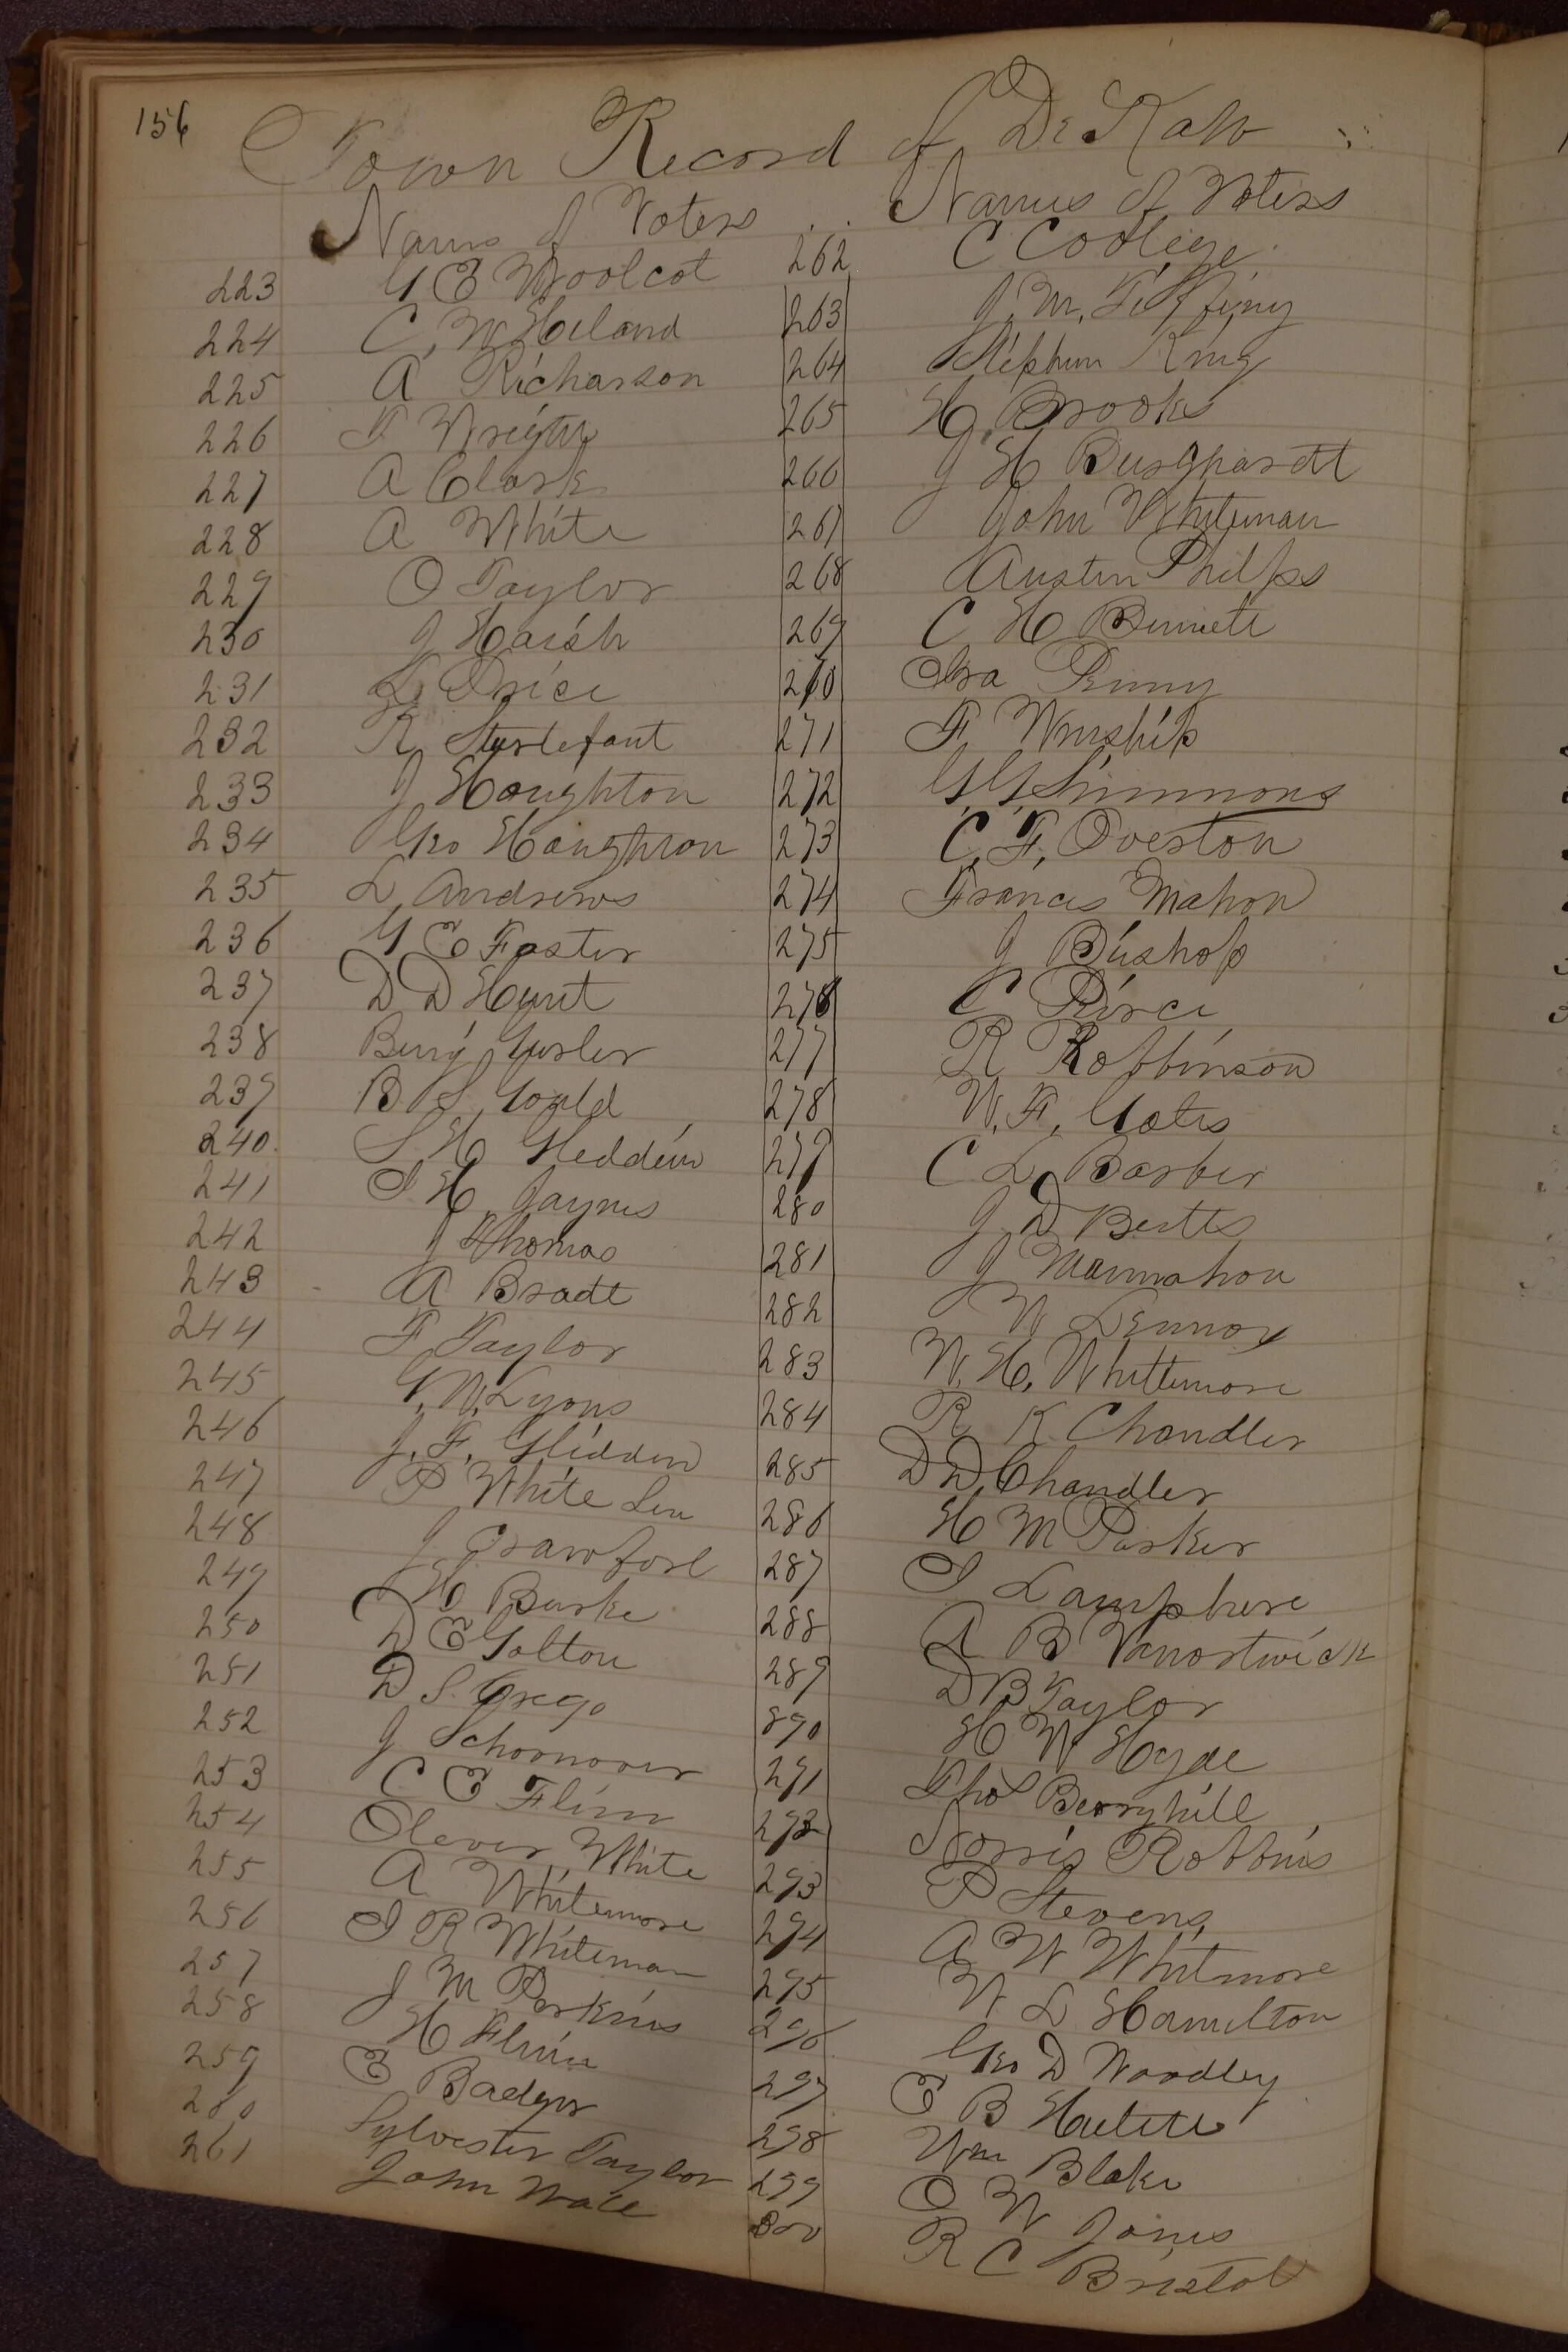 156
Town Record of De Kalb
Names of Voters
223 G E Woolcot
224 C. W. Hiland
225 A Richarson
226 F Wright
227 A Clark
228 A White
229 O Taylor
230 J Haish
231 L Price
232 R Sturtefant
233 J Houghton
234 Geo Houghton
235 L Andrews
236 G E Foster
237 D D Hunt
238 Benj Gurler
239 B S Gould
240 S H Gleddin
241 I H Jaynes
242 J Thomas
243 A Bradt
244 F Taylor
245 G. W. Lyons
246 J. F. Glidden
247 P White Sen
248 J Crawford
249 H Burke
250 D E Golton
251 D S. Crego
252 J Schoonover
253 C E Flinn
254 Olever White
255 A Whitemore
256 I R Whiteman
257 J M Perkins
258 H Flinn
259 E Badger
260 Sylvester Taylor
261 John Wale
Names of Voters
262 C Coolege
263 J. M. Tiffiny
264 Stephen King
265 H Brooks
266 J H Burghardt
267 John Whiteman
268 Austin Philps
269 C H Bennett
270 Ira Penny
271 F Winship
272 G G Simmons
273 C. F. Overton
274 Francis Mahon
275 J Bishop
276 C Pirce
277 R Robbinson
278 W. F. Gates
279 C L Barber
280 J D Betts
281 J Manmahon
282 W Lennox
283 W. H. Whittemore
284 R K Chandler
285 D D Chandler
286 H M Parker
287 I Lamphere
288 A B Vanostwick
289 D B Taylor
890 H W Hyde
291 Thos Berryhill
292 Norris Robbins
293 P Stevens
294 A W Whitmore
295 W L Hamilton
296 Geo D Woodley
297 E B Huletts
298 Wm Blake
299 O W Jones
300 R C Bristol